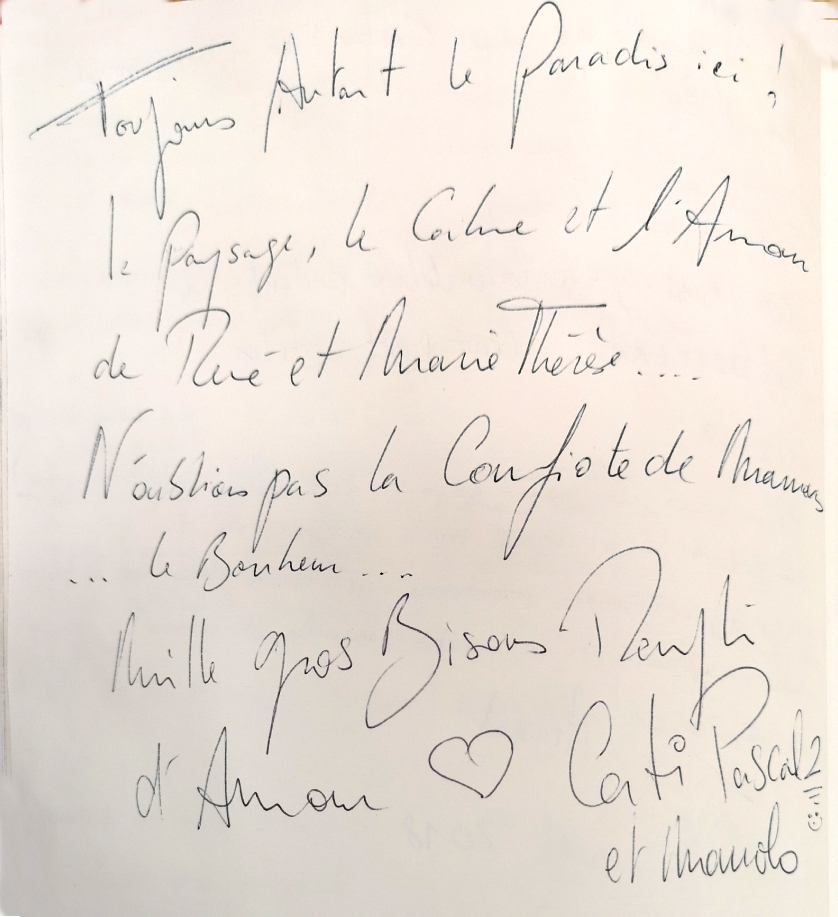 Toujours Autant le Paradis ici !
le Paysage, le Calme et l'Amour
de René et Marie Thérèse....
N'oublions pas la Confiote de Maman
... le Bonheur....
Mille gros Bisous Remplis
d'Amour ♡ Cati Pascal 2
et Manolo